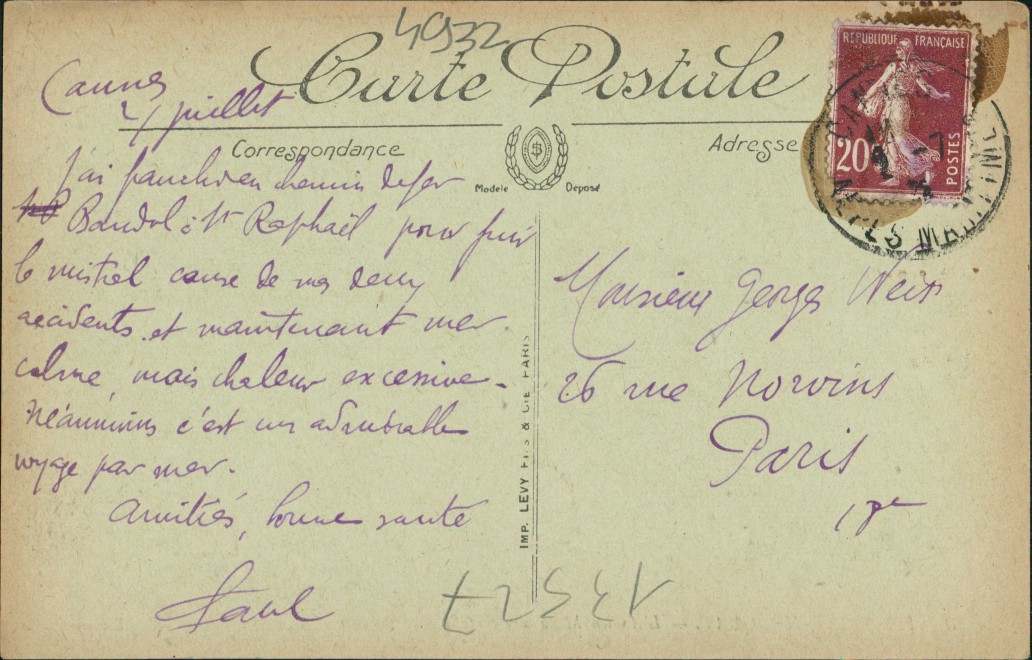 4932
Carte Postale
RÉPUBLIQUE FRANÇAISE
20c
POSTES
Cannes
juillet
Correspondance
Adresse
Modèle Déposé
J'ai franchi en chemin de fer
Bandol à St Raphaël pour fuir
le mistral cause de mes deux
accidents. et maintenant mer
calme, mais chaleur excessive.
Néanmoins c'est un admirable
voyage par mer.
Amitiés, bonne santé
Paul
IMP. LEVY FILS & CIE PARIS
Monsieur Georges Weiss
26 rue Norvins
Paris
18e
13527